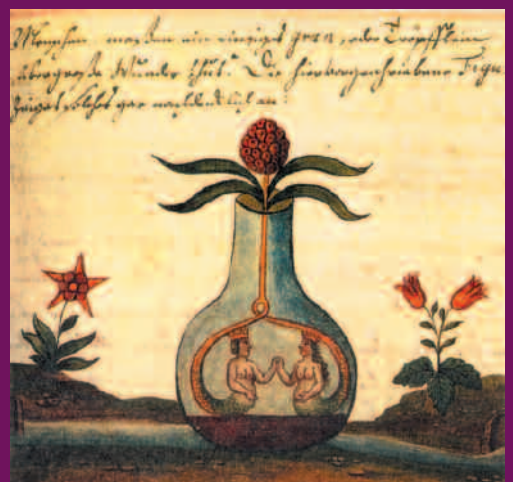 Menschen nur den ein einziges gran, oder Tröpfflein
übergroße Wunder thut. Die hiervorgeschriebene Figur
zeiget solches gar nachdencklich an: